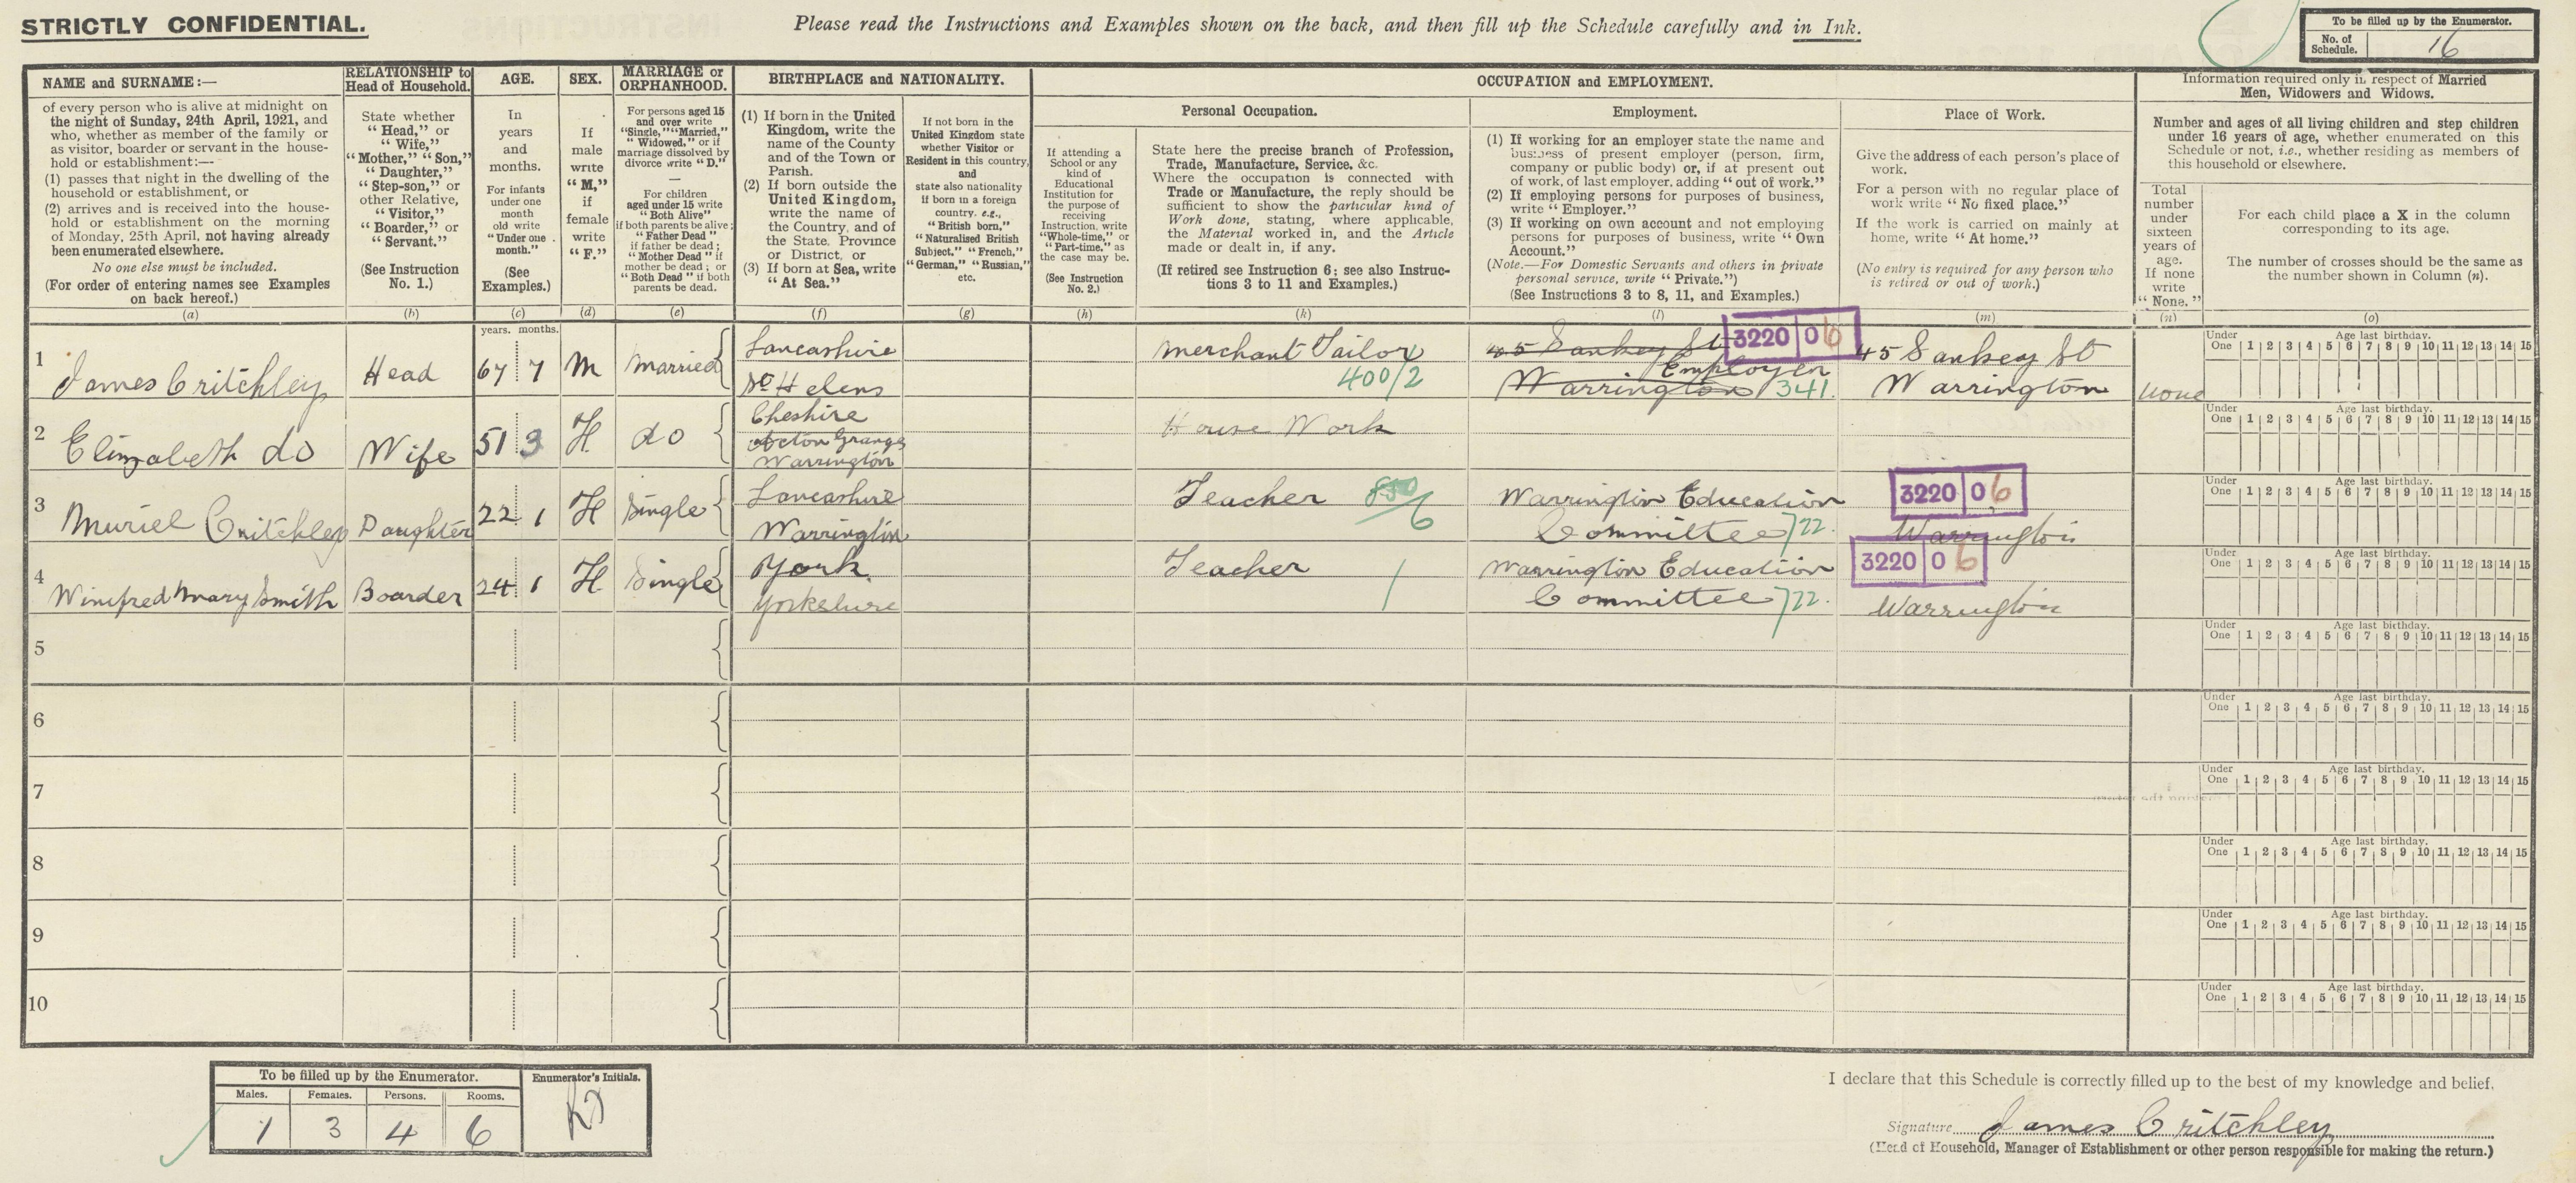 STRICTLY CONFIDENTIAL.
Please read the Instructions and Examples shown on the back, and then fill up the Schedule carefully and in Ink.
To be filled up by the Enumerator.
No. of Schedule. 16
NAME and SURNAME:—
of every person who is alive at midnight on
the night of Sunday, 24th April, 1921, and
who, whether as member of the family or
as visitor, boarder or servant in the house-
hold or establishment:—
(1) passes that night in the dwelling of the
household or establishment, or
(2) arrives and is received into the house-
hold or establishment on the morning
of Monday, 25th April, not having already
been enumerated elsewhere.
No one else must be included.
(For order of entering names see Examples
on back hereof.)
(a)
RELATIONSHIP to
Head of Household.
State whether
"Head," or
"Wife,"
"Mother," "Son,"
"Daughter,"
"Step-son," or
other Relative,
"Visitor,"
"Boarder," or
"Servant."
(See Instruction
No. 1.)
(b)
AGE.
In
years
and
months.
For infants
under one
month
old write
"Under one
month."
(See
Examples.)
(c)
SEX.
If
male
write
"M,"
if
female
write
"F."
(d)
MARRIAGE or
ORPHANHOOD.
For persons aged 15
and over write
"Single," "Married,"
"Widowed," or if
marriage dissolved by
divorce write "D."
—
For children
aged under 15 write
"Both Alive"
if both parents be alive;
"Father Dead"
if father be dead;
"Mother Dead" if
mother be dead; or
"Both Dead" if both
parents be dead.
(e)
BIRTHPLACE and NATIONALITY.
(1) If born in the United
Kingdom, write the
name of the County
and of the Town or
Parish.
(2) If born outside the
United Kingdom,
write the name of
the Country, and of
the State, Province
or District, or
(3) If born at Sea, write
"At Sea."
(f)
If not born in the
United Kingdom state
whether Visitor or
Resident in this country,
and
state also nationality
if born in a foreign
country. e.g.,
"British born,"
"Naturalised British
Subject," "French,"
"German," "Russian,"
etc.
(g)
OCCUPATION and EMPLOYMENT.
If attending a
School or any
kind of
Educational
Institution for
the purpose of
receiving
Instruction, write
"Whole-time," or
"Part-time," as
the case may be.
(See Instruction
No. 2.)
(h)
Personal Occupation.
State here the precise branch of Profession,
Trade, Manufacture, Service, &c.
Where the occupation is connected with
Trade or Manufacture, the reply should be
sufficient to show the particular kind of
Work done, stating, where applicable,
the Material worked in, and the Article
made or dealt in, if any.
(If retired see Instruction 6; see also Instruc-
tions 3 to 11 and Examples.)
(k)
Employment.
(1) If working for an employer state the name and
business of present employer (person, firm,
company or public body) or, if at present out
of work, of last employer, adding "out of work."
(2) If employing persons for purposes of business,
write "Employer."
(3) If working on own account and not employing
persons for purposes of business, write "Own
Account."
(Note.—For Domestic Servants and others in private
personal service, write "Private.")
(See Instructions 3 to 8, 11, and Examples.)
(l)
Place of Work.
Give the address of each person's place of
work.
For a person with no regular place of
work write "No fixed place."
If the work is carried on mainly at
home, write "At home."
(No entry is required for any person who
is retired or out of work.)
(m)
Information required only in respect of Married
Men, Widowers and Widows.
Number and ages of all living children and step children
under 16 years of age, whether enumerated on this
Schedule or not, i.e., whether residing as members of
this household or elsewhere.
Total
number
under
sixteen
years of
age.
If none
write
"None."
(n)
For each child place a X in the column
corresponding to its age.
The number of crosses should be the same as
the number shown in Column (n).
(o)
years. months.
1 James Critchley Head 67 7 M Married Lancashire St Helens Merchant Tailor 400/2 45 Sankey St Warrington Employer 341. 3220 06 45 Sankey St Warrington None
Under One Age last birthday. 1 2 3 4 5 6 7 8 9 10 11 12 13 14 15
2 Elizabeth do Wife 51 3 F do Cheshire Acton Grange Warrington House Work
Under One Age last birthday. 1 2 3 4 5 6 7 8 9 10 11 12 13 14 15
3 Muriel Critchley Daughter 22 1 F Single Lancashire Warrington Teacher 6 Warrington Education Committee 722. 3220 06 Warrington
Under One Age last birthday. 1 2 3 4 5 6 7 8 9 10 11 12 13 14 15
4 Winifred Mary Smith Boarder 24 1 F Single York Yorkshire Teacher Warrington Education Committee 722. 3220 06 Warrington
Under One Age last birthday. 1 2 3 4 5 6 7 8 9 10 11 12 13 14 15
5
Under One Age last birthday. 1 2 3 4 5 6 7 8 9 10 11 12 13 14 15
6
Under One Age last birthday. 1 2 3 4 5 6 7 8 9 10 11 12 13 14 15
7
Under One Age last birthday. 1 2 3 4 5 6 7 8 9 10 11 12 13 14 15
8
Under One Age last birthday. 1 2 3 4 5 6 7 8 9 10 11 12 13 14 15
9
Under One Age last birthday. 1 2 3 4 5 6 7 8 9 10 11 12 13 14 15
10
Under One Age last birthday. 1 2 3 4 5 6 7 8 9 10 11 12 13 14 15
To be filled up by the Enumerator.
Males. Females. Persons. Rooms.
1 3 4 6
Enumerator's Initials.
I declare that this Schedule is correctly filled up to the best of my knowledge and belief.
Signature James Critchley
(Head of Household, Manager of Establishment or other person responsible for making the return.)